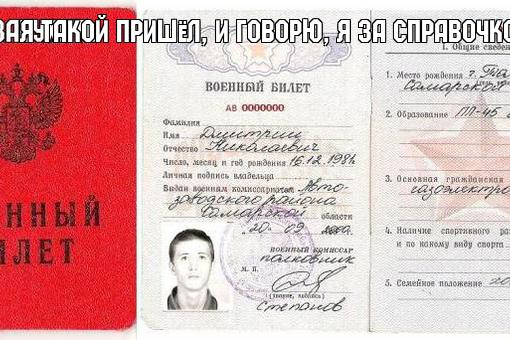 ЗАЯ ТАКОЙ ПРИШЁЛ, И ГОВОРЮ, Я ЗА СПРАВОЧКО
ЕННЫЙ
ИЛЕТ
ВОЕННЫЙ БИЛЕТ
АВ 0000000
Фамилия
Имя Дмитрий
Отчество Николаевич
Число, месяц и год рождения 16.12.1981
Личная подпись владельца
Выдан военным комиссариатом Авто-
заводского района
Самарской области
20 09
ВОЕННЫЙ КОМИССАР
полковник
М. П.
(звание, подпись)
Степанов
I. Общие сведен
1. Место рождения г. То
Самарской
2. Образование ПЛ-45
3. Основная гражданская
газоэлектро
4. Наличие спортивного раз
и по какому виду спорта
5. Семейное положение хо